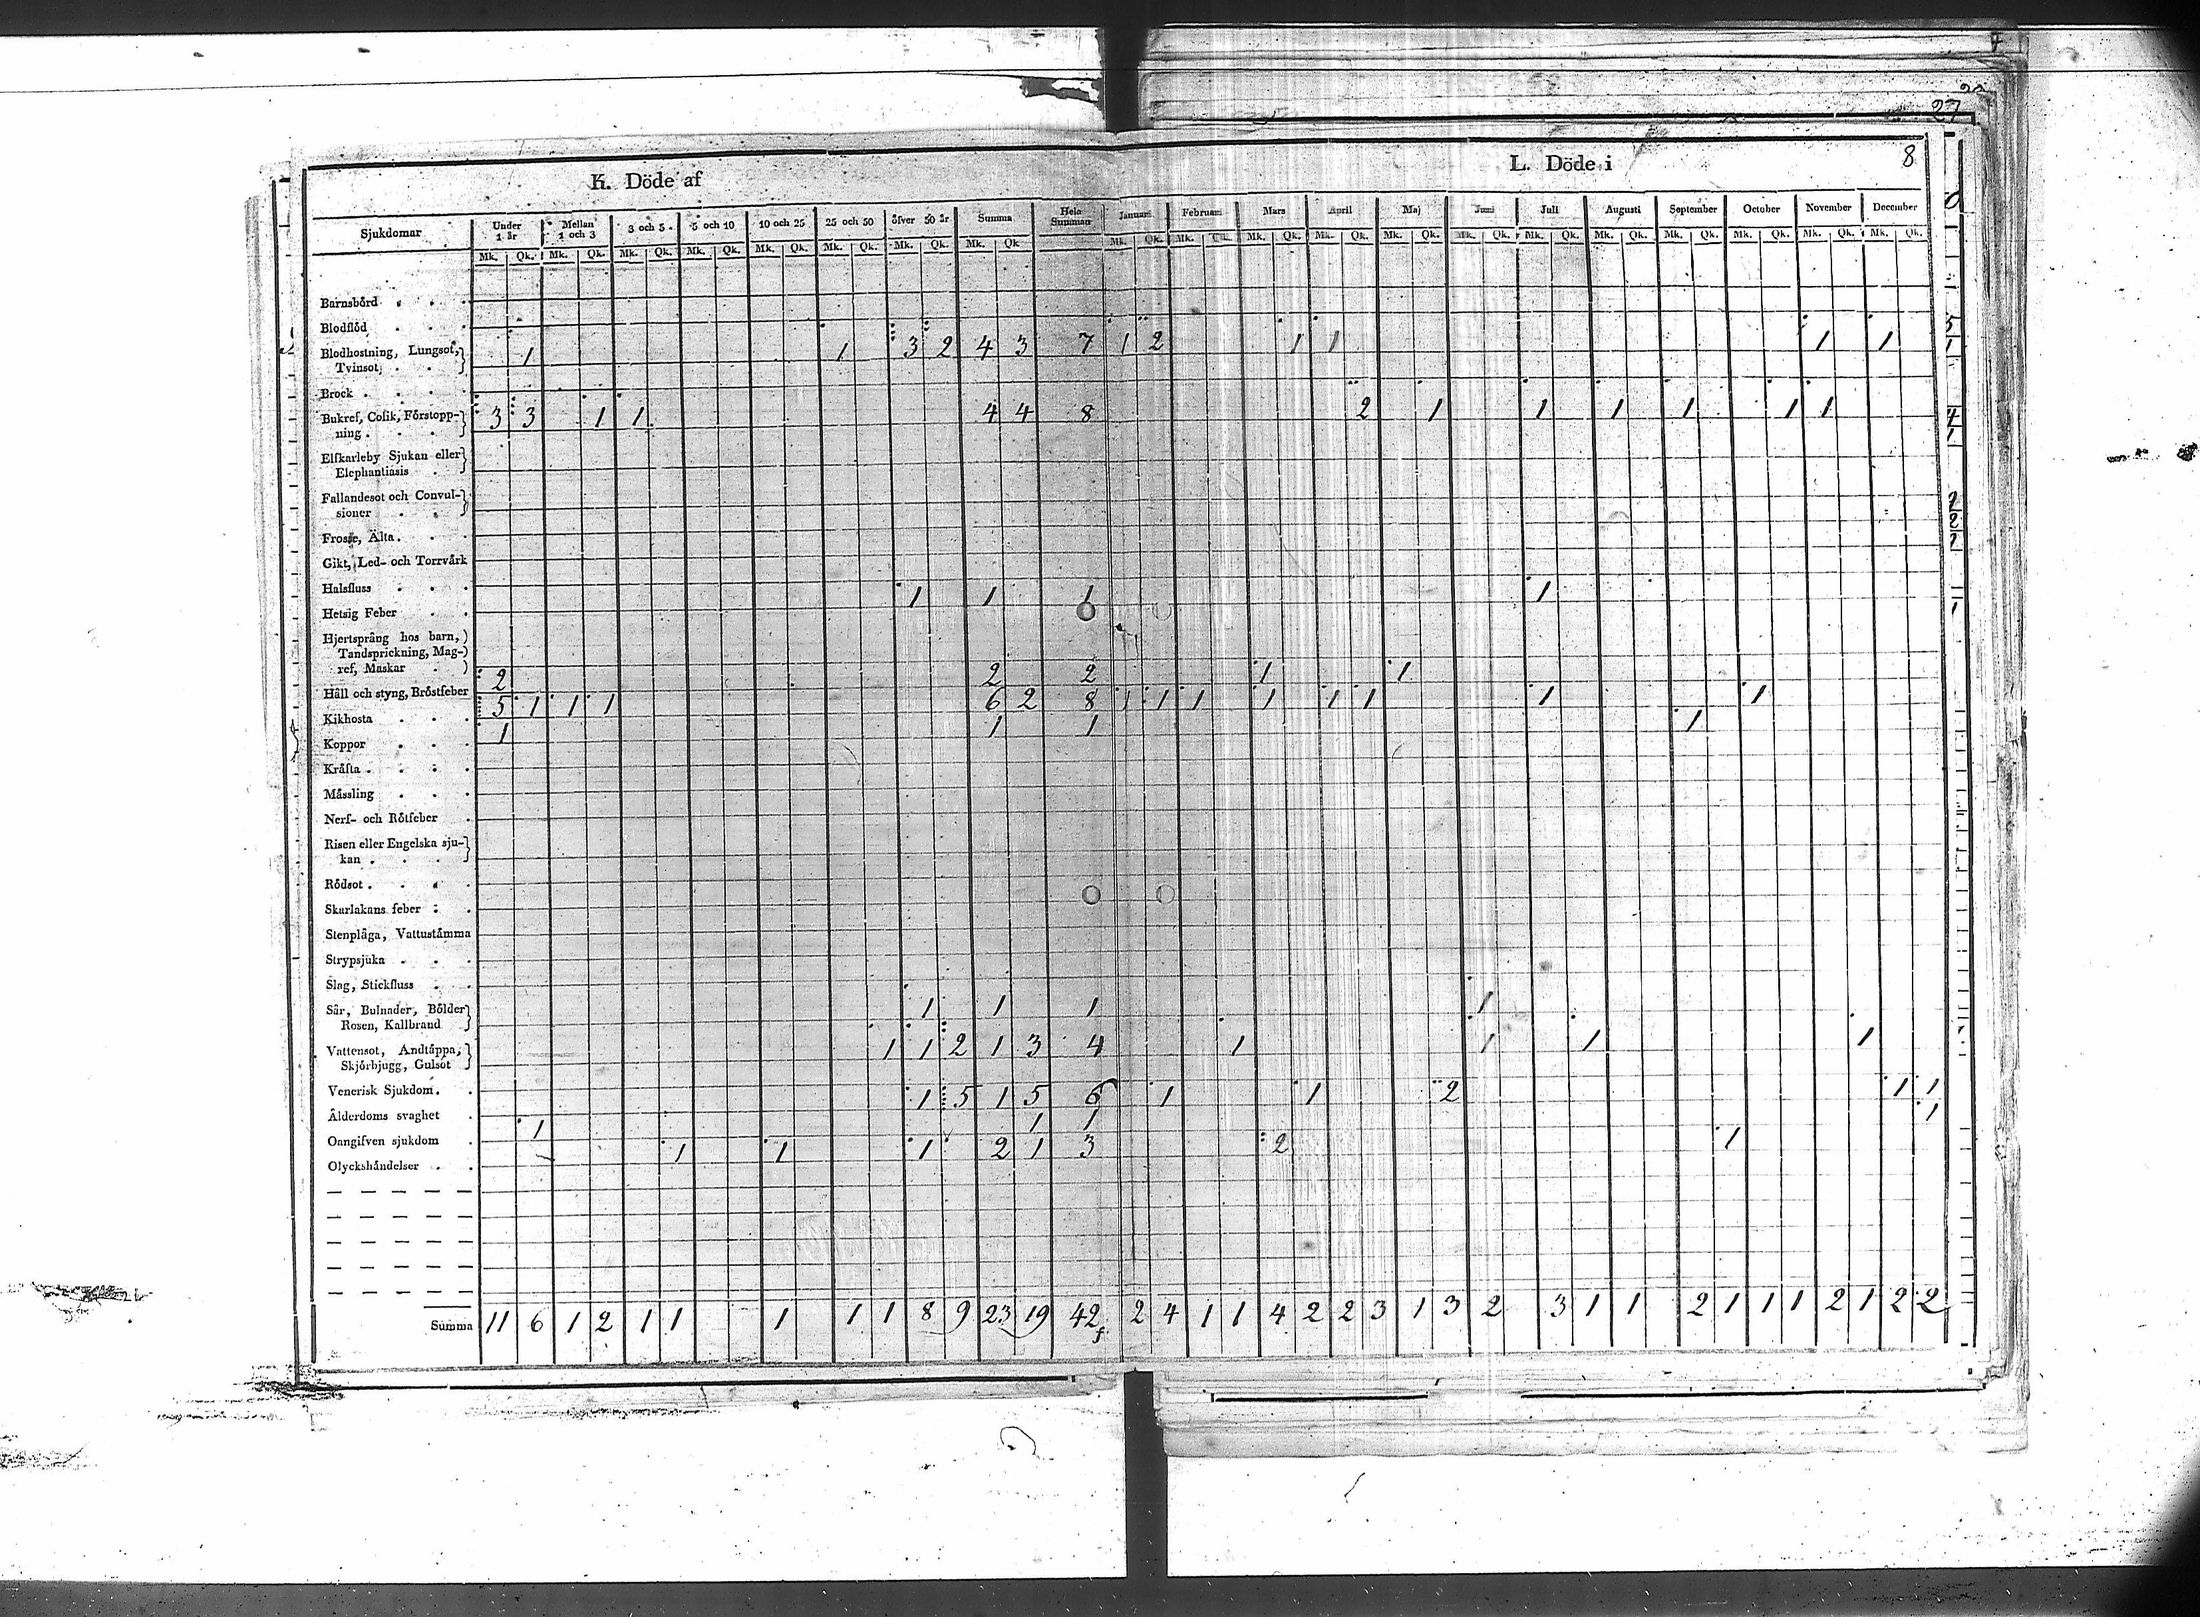 27
8
K. Döde af
L. Döde i
Sjukdomar
Under 1 år
Mellan 1 och 3
3 och 5
5 och 10
10 och 25
25 och 50
öfver 50 år
Summa
Hela Summan
Januari
Februari
Mars
April
Maj
Juni
Juli
Augusti
September
October
November
December
Mk. Qk. Mk. Qk. Mk. Qk. Mk. Qk. Mk. Qk. Mk. Qk. Mk. Qk. Mk. Qk. Mk. Qk. Mk. Qk. Mk. Qk. Mk. Qk. Mk. Qk. Mk. Qk. Mk. Qk. Mk. Qk. Mk. Qk. Mk. Qk. Mk. Qk. Mk. Qk.
Barnsbörd
Blodflöd
Blodhostning, Lungsot,
Tvinsot
1 1 3 2 4 3 7 1 2 1 1 1 1
Brock
Bukref, Colik, Förstopp-
ning
3 3 1 1 4 4 8 2 1 1 1 1 1 1
Elfkarleby Sjukan eller
Elephantiasis
Fallandesot och Convul-
sioner
Frossa, Älta
Gikt, Led- och Torrvärk
Halsfluss
1 1 1 1
Hetsig Feber
Hjertsprång hos barn,
Tandsprickning, Mag-
ref, Maskar
2 2 2 1 1
Håll och styng, Bröstfeber
5 1 1 1 6 2 8 1 1 1 1 1 1 1 1
Kikhosta
1 1 1 1
Koppor
Kräfta
Mässling
Nerf- och Rötfeber
Risen eller Engelska sju-
kan
Rödsot
Skarlakans feber
Stenplåga, Vattustämma
Strypsjuka
Slag, Stickfluss
Sår, Bulnader, Bölder
Rosen, Kallbrand
1 1 1 1
Vattensot, Andtäppa,
Skjörbjugg, Gulsot
1 1 2 1 3 4 1 1 1 1
Venerisk Sjukdom
1 5 1 5 6 1 1 2 1 1
Ålderdoms svaghet
1 1 1 1
Oangifven sjukdom
1 1 1 2 1 3 2 1
Olyckshändelser
Summa 11 6 1 2 1 1 1 1 1 8 9 23 19 42 2 4 1 1 4 2 2 3 1 3 2 3 1 1 2 1 1 1 2 1 2 2